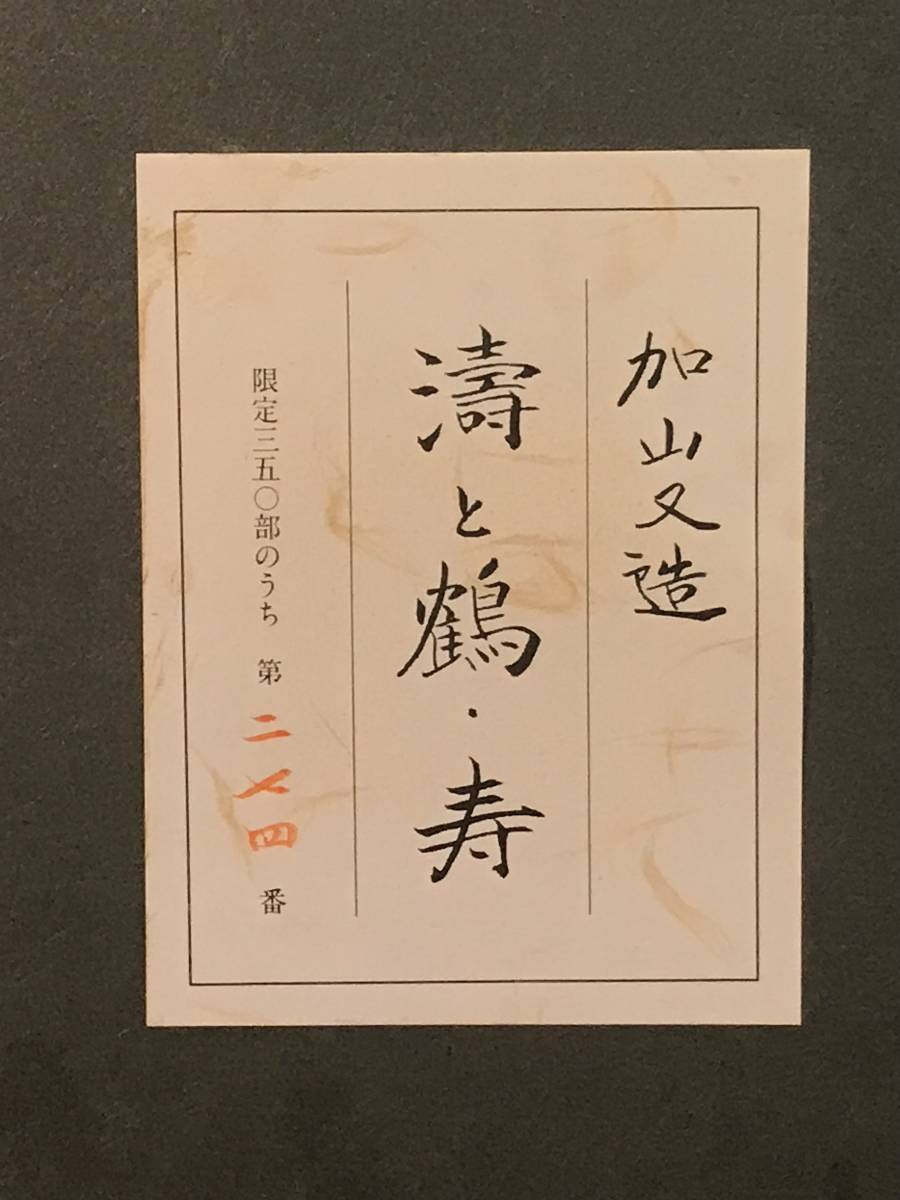 加山又造
濤と鶴・寿
限定三五〇部のうち 第二七四番